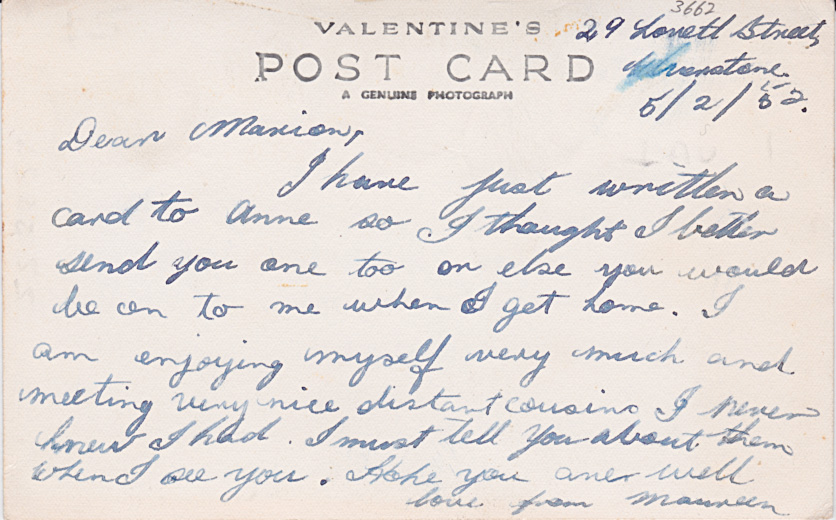 3662
VALENTINE'S
29 Lovett Street,
POST CARD
Ulverstone.
A GENUINE PHOTOGRAPH
5/2/52.
Dear Marion,
I have just written a
card to Anne so I thought I better
send you one too or else you would
be on to me when I get home. I
am enjoying myself very much and
meeting very nice distant cousins I never
knew I had. I must tell you about them
when I see you. Hope you are well
love from Maureen